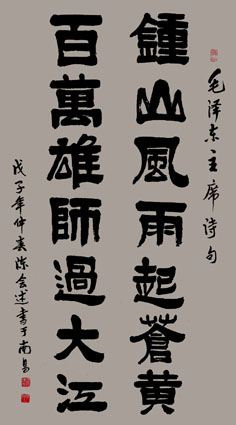 毛泽东主席诗句
鍾山風雨起蒼黄
百萬雄師過大江
戊子年仲春陈会述书于南昌